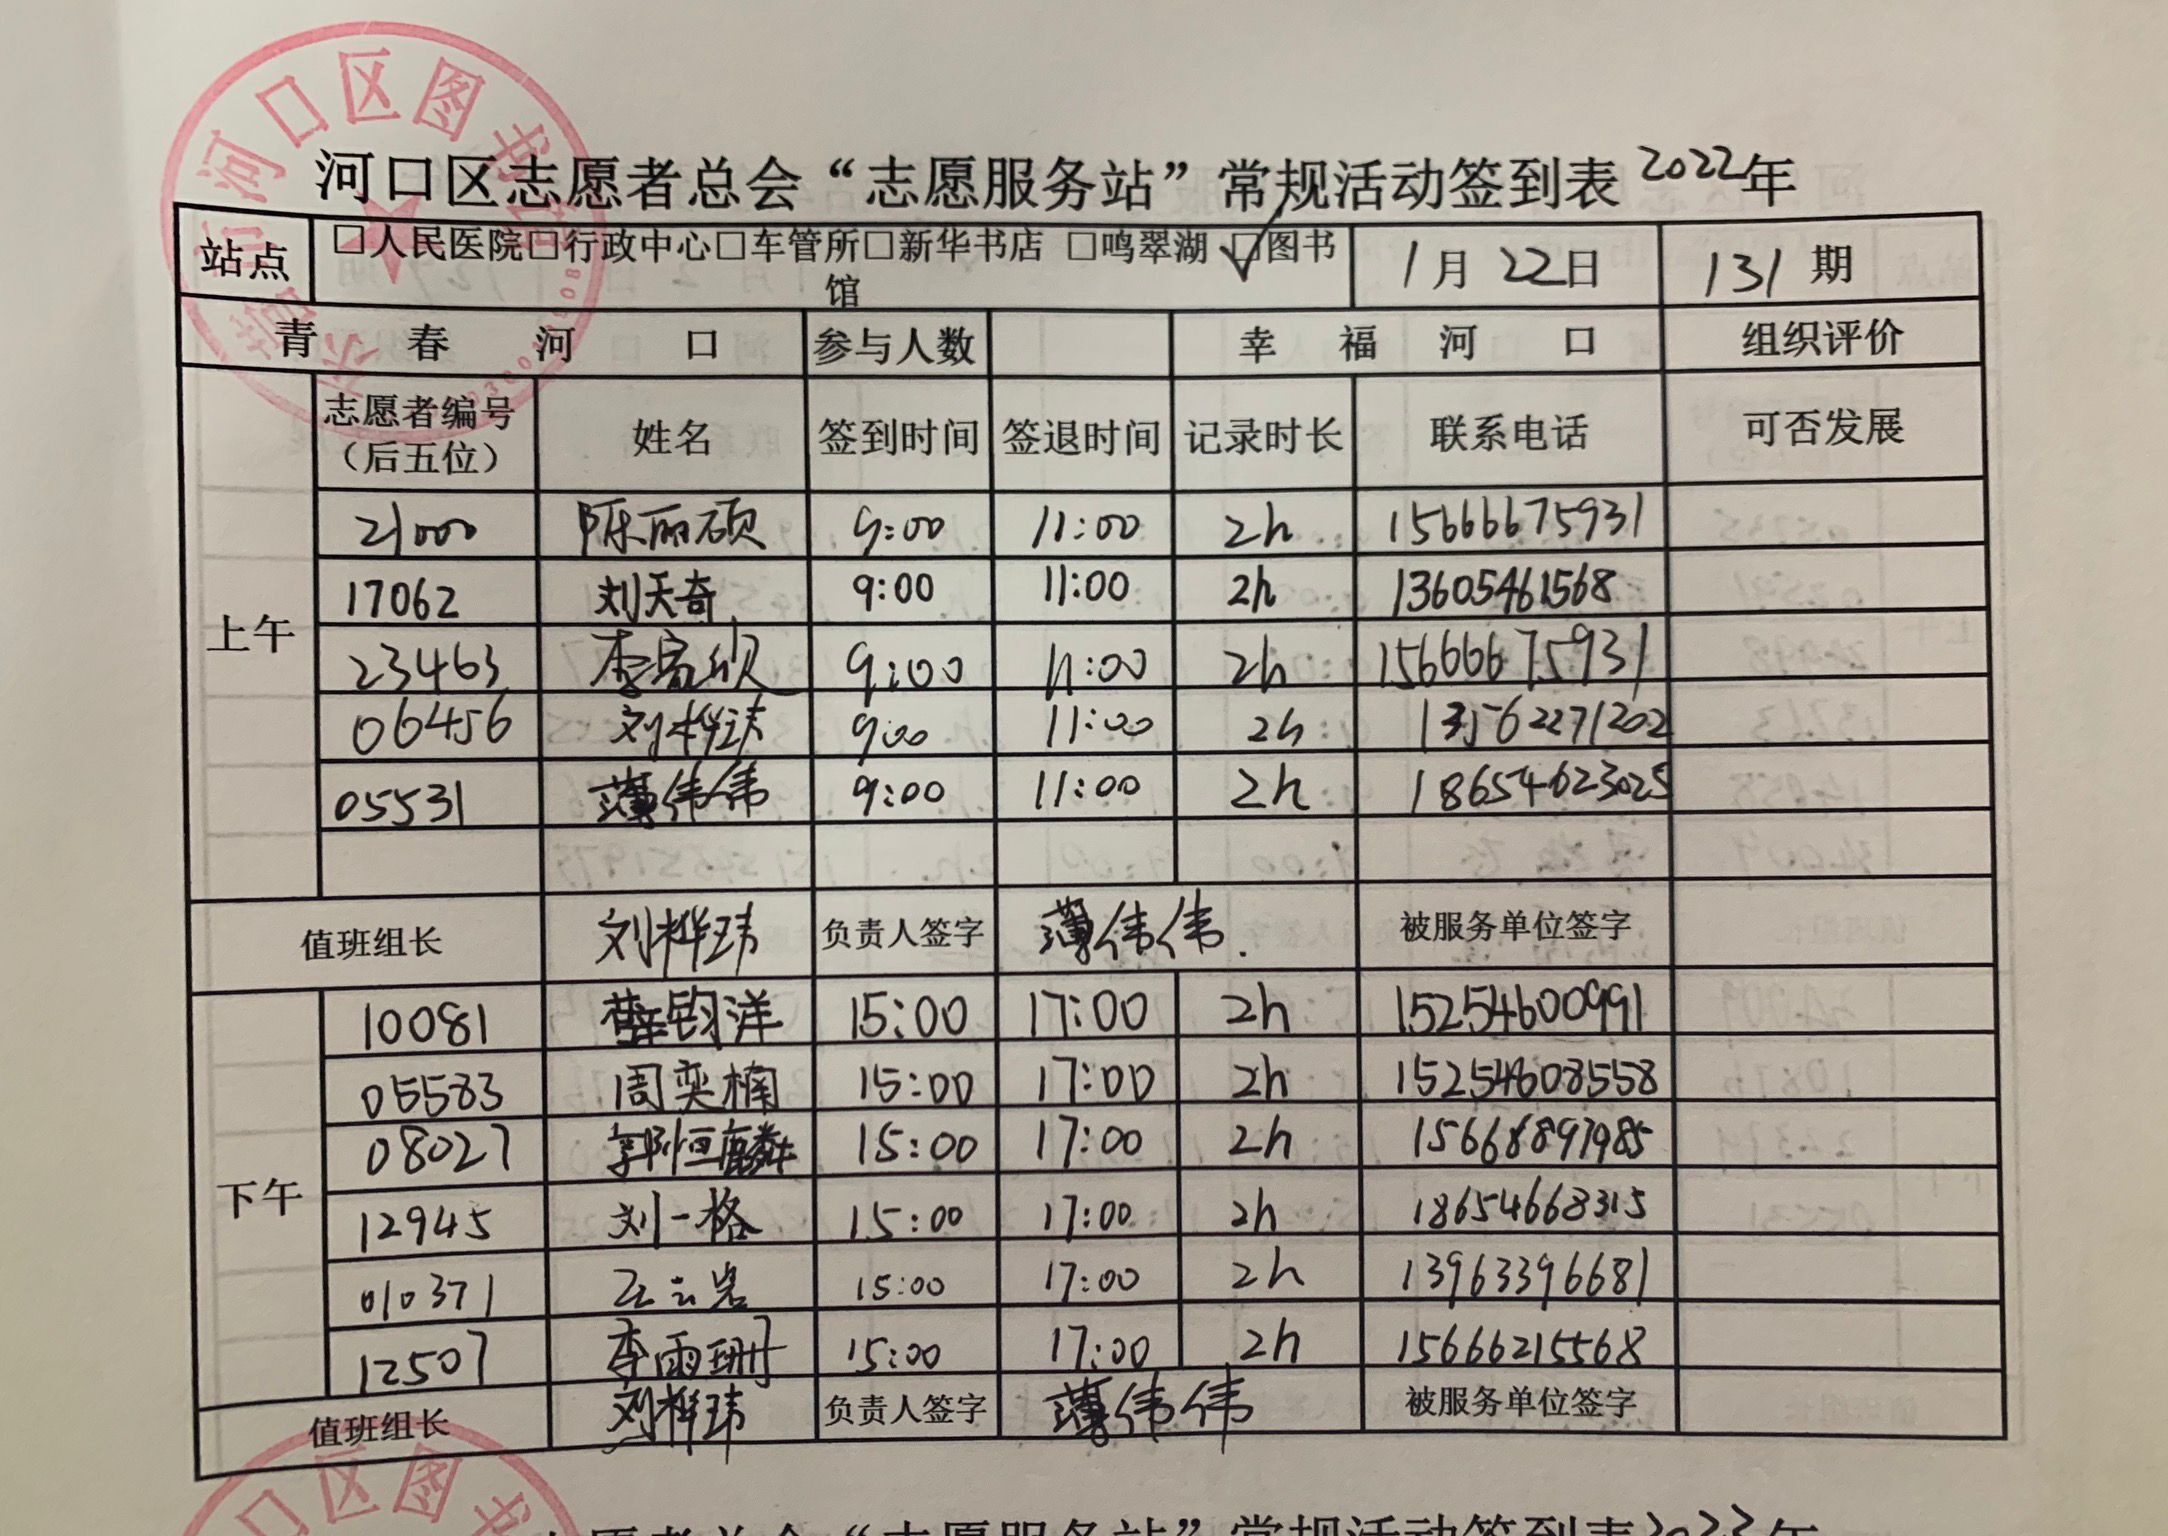 河口区图书
河口区志愿者总会“志愿服务站”常规活动签到表 2022年
站点 □人民医院□行政中心□车管所□新华书店 □鸣翠湖 ☑图书馆 1月 22日 131 期
青 春 河 口 参与人数 幸 福 河 口 组织评价
志愿者编号（后五位） 姓名 签到时间 签退时间 记录时长 联系电话 可否发展
上午
21000 陈丽硕 9:00 11:00 2h 15666675931
17062 刘天奇 9:00 11:00 2h 13605461568
23463 李家欣 9:00 11:00 2h 15666675931
06456 刘桦玮 9:00 11:00 2h 13562271202
05531 薄伟伟 9:00 11:00 2h 18654623025
值班组长 刘桦玮 负责人签字 薄伟伟. 被服务单位签字
下午
10081 薛钧洋 15:00 17:00 2h 15254600991
05583 周奕楠 15:00 17:00 2h 15254608558
08027 郭恒麟 15:00 17:00 2h 15668897985
12945 刘一格 15:00 17:00 2h 18654668315
010371 15:00 17:00 2h 13963396681
12507 李雨珊 15:00 17:00 2h 15666215568
值班组长 刘桦玮 负责人签字 薄伟伟 被服务单位签字
口区图书
志愿者总会“志愿服务站”常规活动签到表2023年